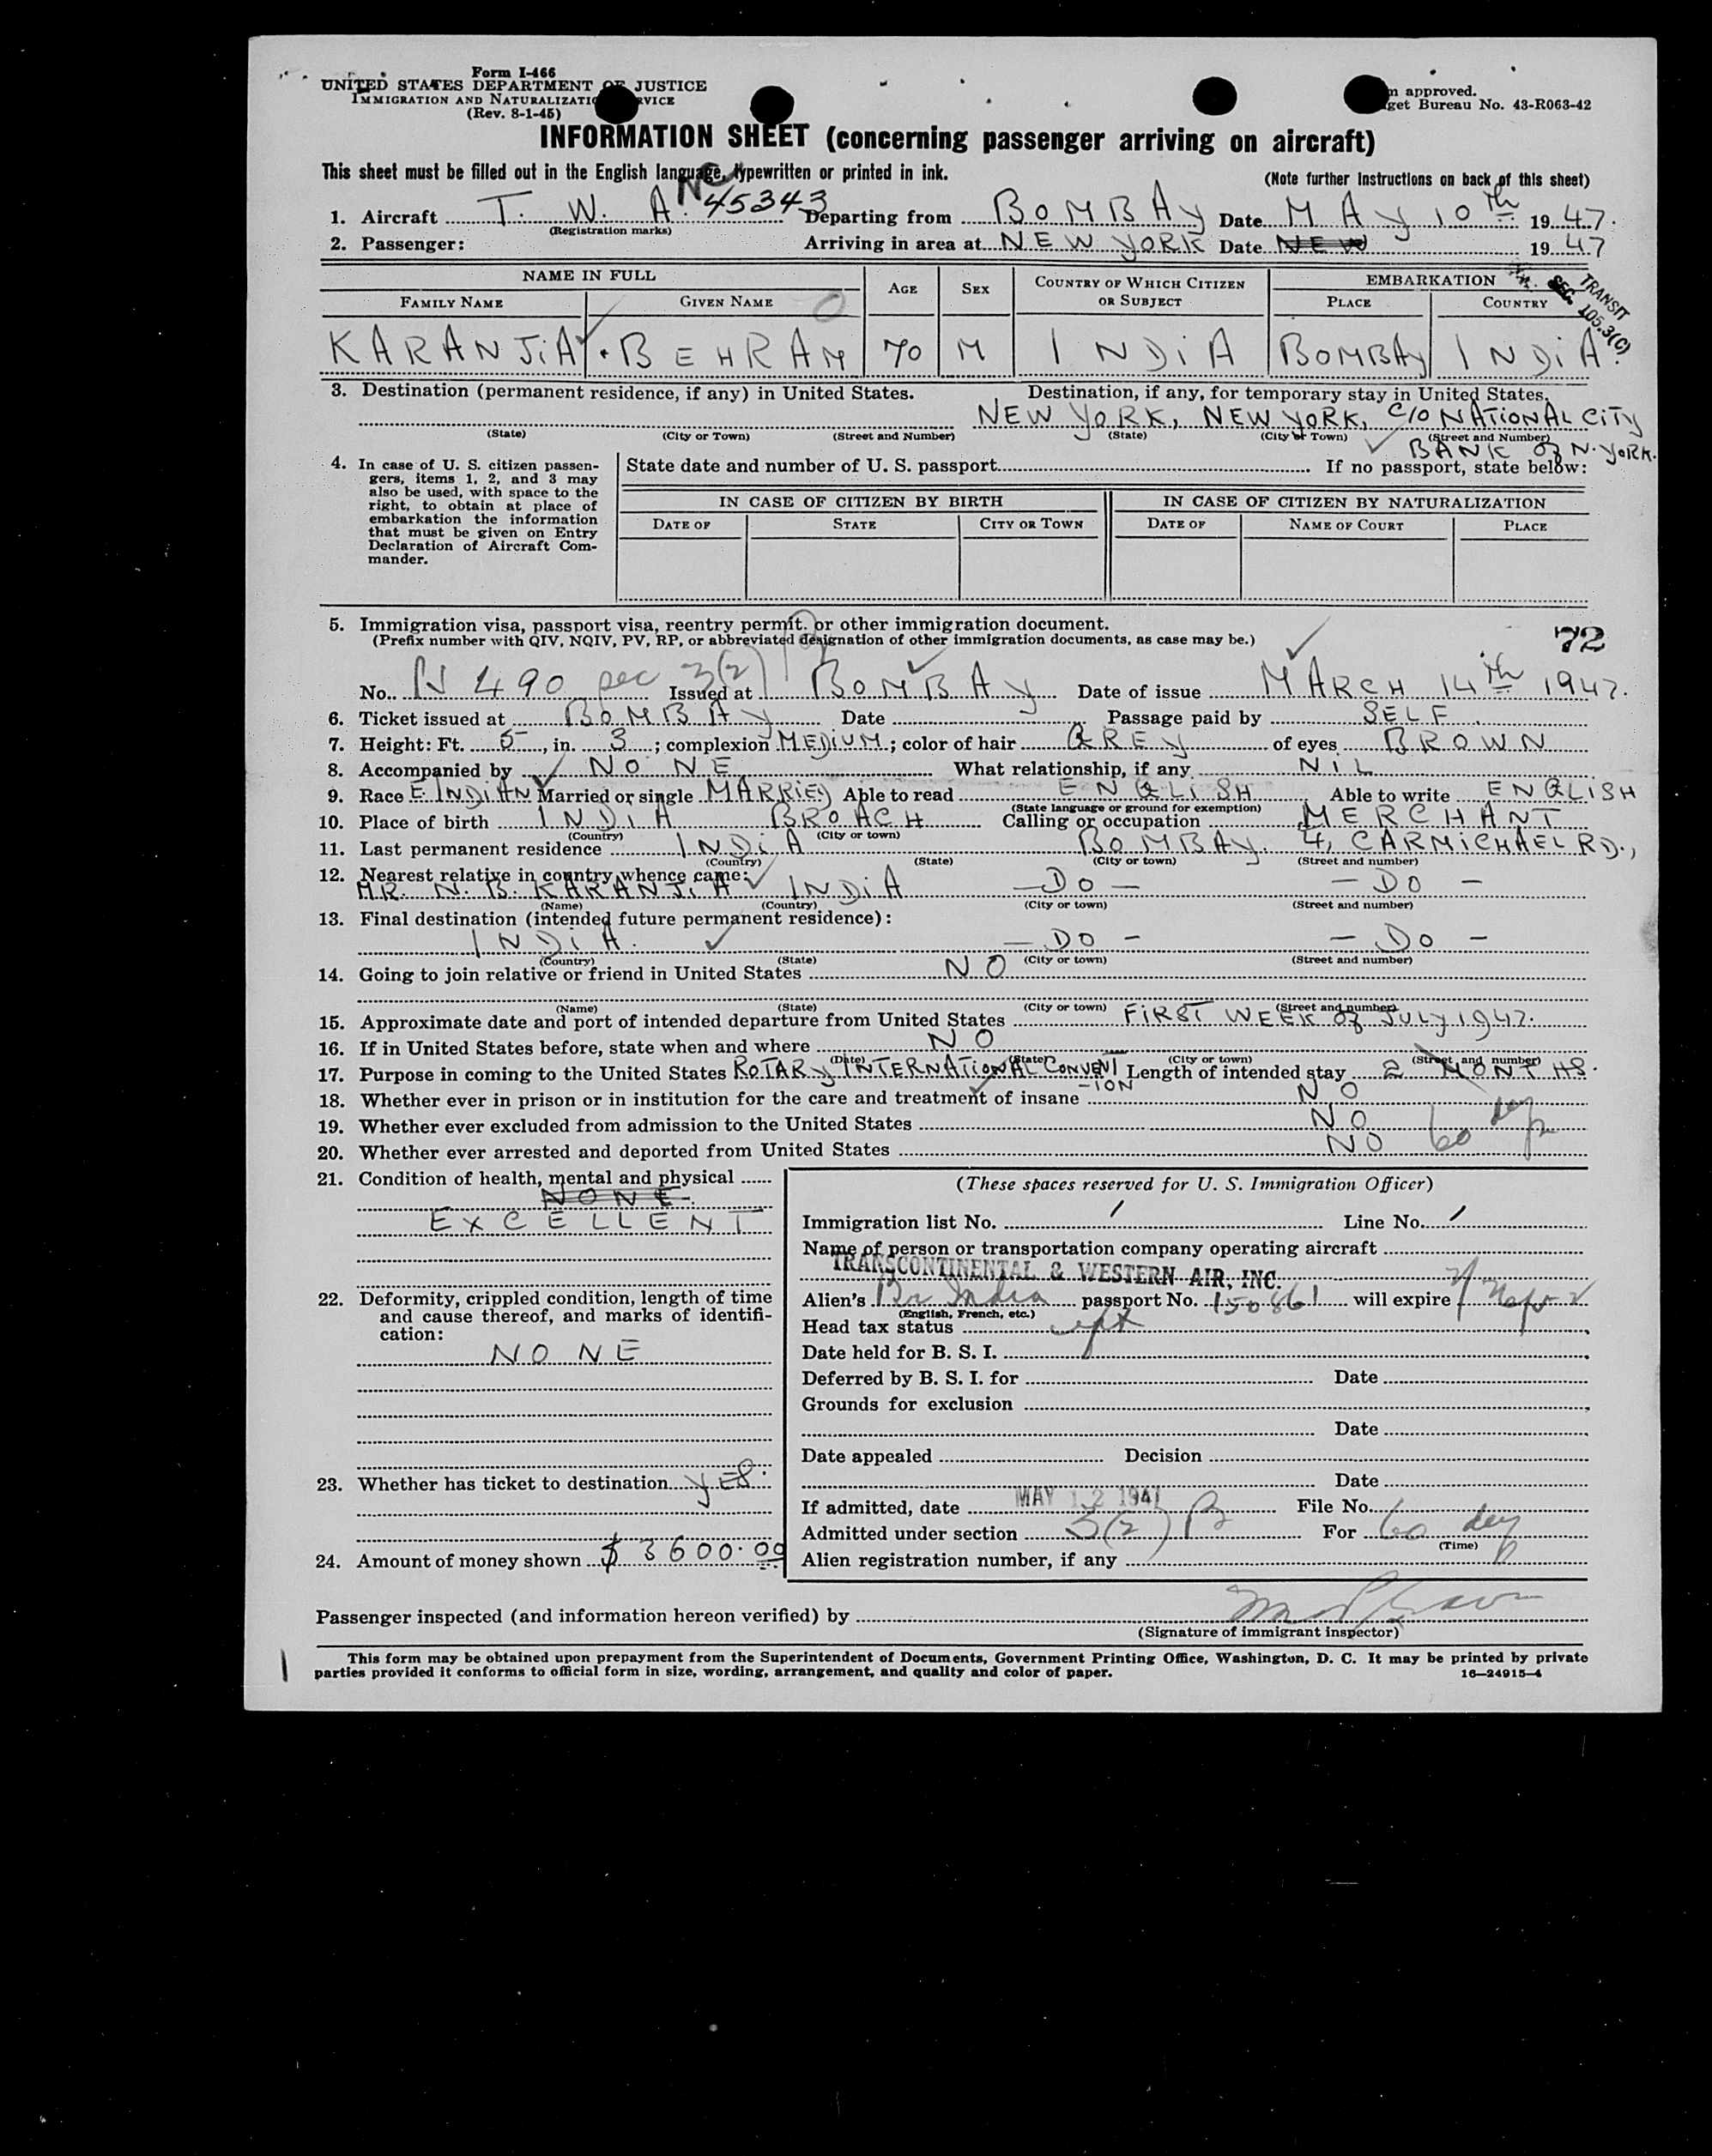 Form I-466
UNITED STATES DEPARTMENT OF JUSTICE
IMMIGRATION AND NATURALIZATION SERVICE
(Rev. 8-1-45)
approved.
get Bureau No. 43-R063-42
INFORMATION SHEET (concerning passenger arriving on aircraft)
This sheet must be filled out in the English language, typewritten or printed in ink.
(Note further instructions on back of this sheet)
1. Aircraft T. W. A. NC 45343 Departing from BOMBAY Date MAY 10th 1947.
(Registration marks)
2. Passenger: Arriving in area at NEW YORK Date NEW 1947
NAME IN FULL AGE SEX COUNTRY OF WHICH CITIZEN OR SUBJECT EMBARKATION
FAMILY NAME GIVEN NAME PLACE COUNTRY
TRANSIT
SEC. 105.3(C)
KARANJIA BEHRAM 70 M INDIA BOMBAY INDIA.
3. Destination (permanent residence, if any) in United States. Destination, if any, for temporary stay in United States.
NEW YORK, NEW YORK, C/O NATIONAL CITY
(State) (City or Town) (Street and Number) (State) (City or Town) (Street and Number)
BANK OF N. YORK.
4. In case of U. S. citizen passengers, items 1, 2, and 3 may also be used, with space to the right, to obtain at place of embarkation the information that must be given on Entry Declaration of Aircraft Commander.
State date and number of U. S. passport If no passport, state below:
IN CASE OF CITIZEN BY BIRTH IN CASE OF CITIZEN BY NATURALIZATION
DATE OF STATE CITY OR TOWN DATE OF NAME OF COURT PLACE
5. Immigration visa, passport visa, reentry permit. or other immigration document.
(Prefix number with QIV, NQIV, PV, RP, or abbreviated designation of other immigration documents, as case may be.)
72
No. N 490 sec 3(2) Issued at BOMBAY Date of issue MARCH 14th 1947.
6. Ticket issued at BOMBAY Date Passage paid by SELF.
7. Height: Ft. 5, in. 3; complexion MEDIUM; color of hair GREY of eyes BROWN
8. Accompanied by NONE What relationship, if any NIL
9. Race E. INDIAN Married or single MARRIED Able to read ENGLISH Able to write ENGLISH
(State language or ground for exemption)
10. Place of birth INDIA BROACH Calling or occupation MERCHANT
(Country) (City or town)
11. Last permanent residence INDIA BOMBAY. 4, CARMICHAEL RD.,
(Country) (State) (City or town) (Street and number)
12. Nearest relative in country whence came:
MR. N. B. KARANJIA INDIA — DO — — DO —
(Name) (Country) (City or town) (Street and number)
13. Final destination (intended future permanent residence):
INDIA. — DO — — DO —
(Country) (State) (City or town) (Street and number)
14. Going to join relative or friend in United States NO
(Name) (State) (City or town) (Street and number)
15. Approximate date and port of intended departure from United States FIRST WEEK OF JULY 1947.
16. If in United States before, state when and where NO
(Date) (State) (City or town) (Street and number)
17. Purpose in coming to the United States ROTARY INTERNATIONAL CONVENT Length of intended stay 2 MONTHS.
-ION
18. Whether ever in prison or in institution for the care and treatment of insane NO
19. Whether ever excluded from admission to the United States NO
20. Whether ever arrested and deported from United States NO 60 days
21. Condition of health, mental and physical
NONE.
EXCELLENT
22. Deformity, crippled condition, length of time and cause thereof, and marks of identification:
NONE
23. Whether has ticket to destination YES.
24. Amount of money shown $ 3600.00
(These spaces reserved for U. S. Immigration Officer)
Immigration list No. 1 Line No. 1
Name of person or transportation company operating aircraft
TRANSCONTINENTAL & WESTERN AIR, INC.
Alien's Br India passport No. 150861 will expire
(English, French, etc.)
Head tax status
Date held for B. S. I.
Deferred by B. S. I. for Date
Grounds for exclusion
Date
Date appealed Decision
Date
If admitted, date MAY 12 1947 File No.
Admitted under section 3(2) B For 60 days
(Time)
Alien registration number, if any
Passenger inspected (and information hereon verified) by
(Signature of immigrant inspector)
This form may be obtained upon prepayment from the Superintendent of Documents, Government Printing Office, Washington, D. C. It may be printed by private
parties provided it conforms to official form in size, wording, arrangement, and quality and color of paper. 16—24915-4